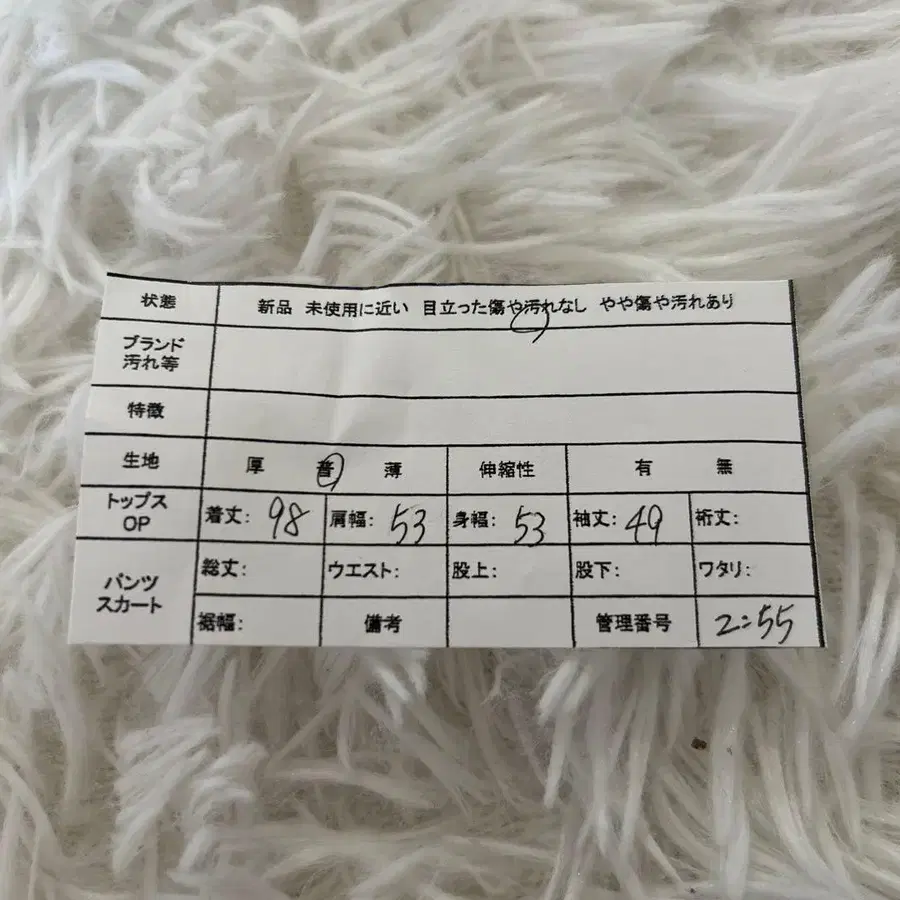 状態 新品 未使用に近い 目立った傷や汚れなし やや傷や汚れあり
ブランド
汚れ等
特徴
生地 厚 普 薄 伸縮性 有 無
トップス
OP
着丈: 98 肩幅: 53 身幅: 53 袖丈: 49 裄丈:
パンツ
スカート
総丈: ウエスト: 股上: 股下: ワタリ:
裾幅: 備考 管理番号 2:55